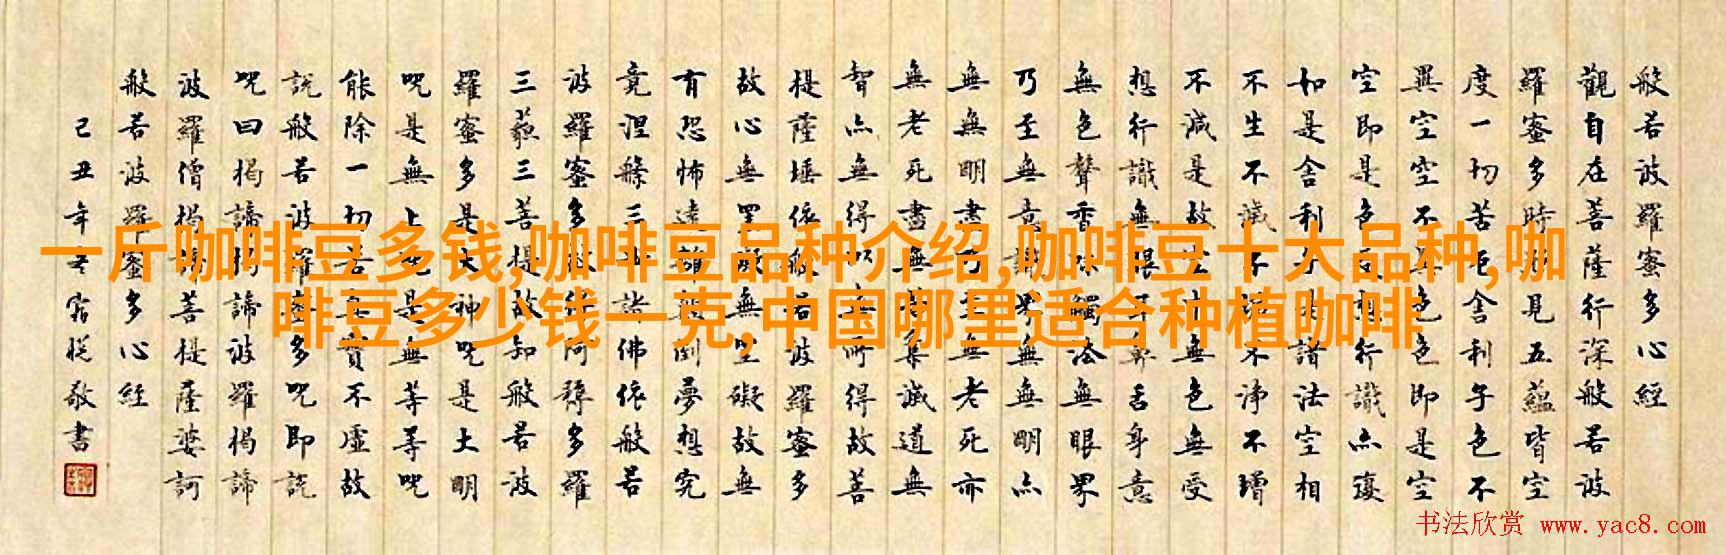 般若波羅蜜多心經
觀自在菩薩行深般若波
羅蜜多時照見五蘊皆空
度一切苦厄舍利子色不
異空空不異色色即是空
空即是色受想行識亦復
如是舍利子是諸法空相
不生不滅不垢不淨不增
不減是故空中無色無受
想行識無眼耳鼻舌身意
無色聲香味觸法無眼界
乃至無意識界無無明亦
無無明盡乃至無老死亦
無老死盡無苦集滅道無
智亦無得以無所得故菩
提薩埵依般若波羅蜜多
故心無罣礙無罣礙故無
有恐怖遠離顛倒夢想究
竟涅槃三世諸佛依般若
波羅蜜多故得阿耨多羅
三藐三菩提故知般若波
羅蜜多是大神咒是大明
咒是無上咒是無等等咒
能除一切苦真實不虛故
說般若波羅蜜多咒即說
咒曰揭諦揭諦波羅揭諦
波羅僧揭諦菩提薩婆訶
般若波羅蜜多心經
己丑年敬書
一斤咖啡豆多钱,咖啡豆品种介绍,咖啡豆十大品种,咖
啡豆多少钱一克,中国哪里适合种植咖啡
书法欣赏 www.yac8.com